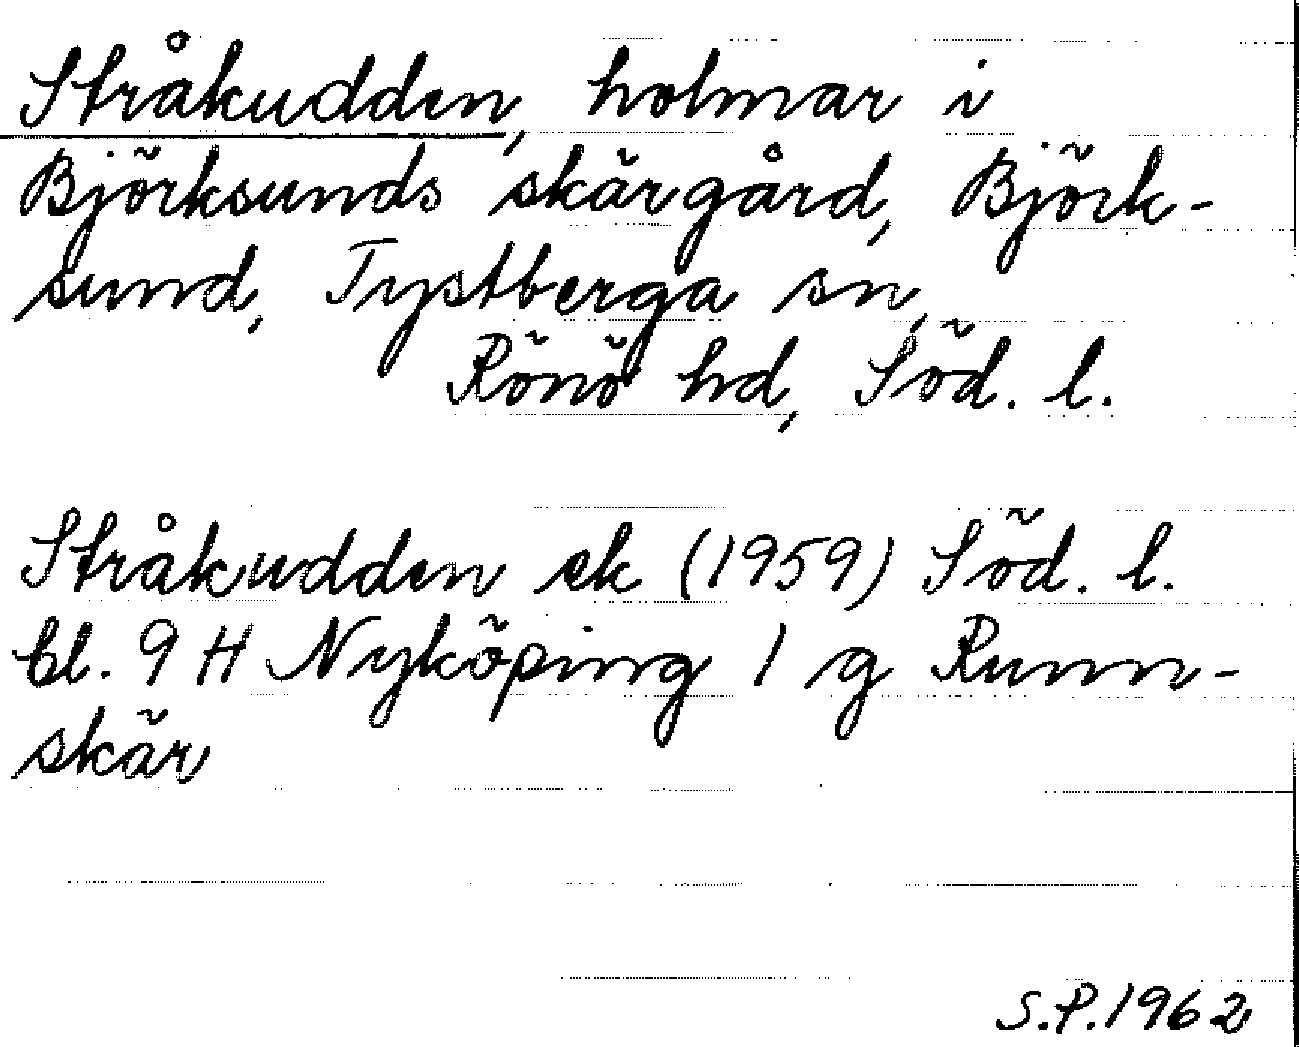 Stråkudden, holmar i
Björksunds skärgård, Björk-
sund, Tystberga sn,
Rönö hd, Söd. l.
Stråkudden ek (1959) Söd. l.
bl. 9 H Nyköping 1 g Runn-
skär
S.P. 1962